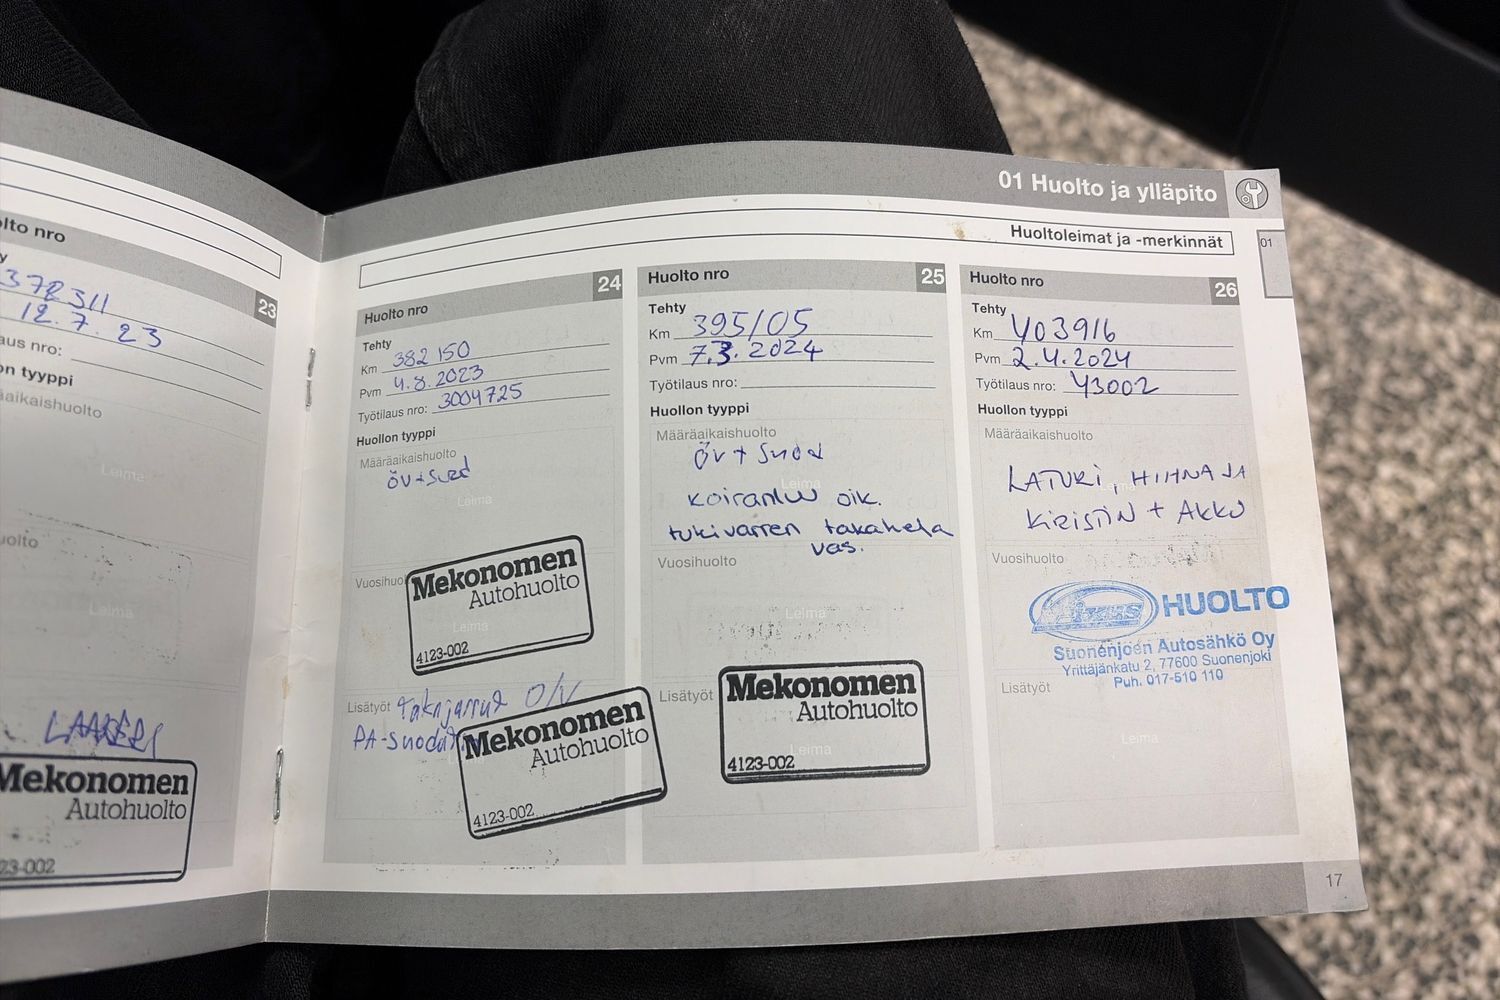 01 Huolto ja ylläpito
Huoltoleimat ja -merkinnät
01
nro
23
372311
12.7.23
nro:
tyyppi
Leima
Leima
Mekonomen
Autohuolto
23-002
Huolto nro
24
Tehty
Km 382 150
Pvm 4.8.2023
Työtilaus nro: 3004725
Huollon tyyppi
Määräaikaishuolto
öv+suod
Leima
Mekonomen
Autohuolto
Leima
4123-002
Lisätyöt Takajarrut O/V
PA-suodat
Mekonomen
Autohuolto
4123-002
Huolto nro
25
Tehty
Km 395105
Pvm 7.3.2024
Työtilaus nro:
Huollon tyyppi
Määräaikaishuolto
öv + suod
Leima
koiranluu oik.
tukivarren takahela
vas.
Vuosihuolto
Leima
Lisätyöt
Mekonomen
Autohuolto
Leima
4123-002
Huolto nro
26
Tehty
Km 403916
Pvm 2.4.2024
Työtilaus nro: 43002
Huollon tyyppi
Määräaikaishuolto
LATURI, HIHNA JA
KIRISTIN + AKKU
Vuosihuolto
HUOLTO
Suonenjoen Autosähkö Oy
Yrittäjänkatu 2, 77600 Suonenjoki
Puh. 017-510 110
Lisätyöt
Leima
17